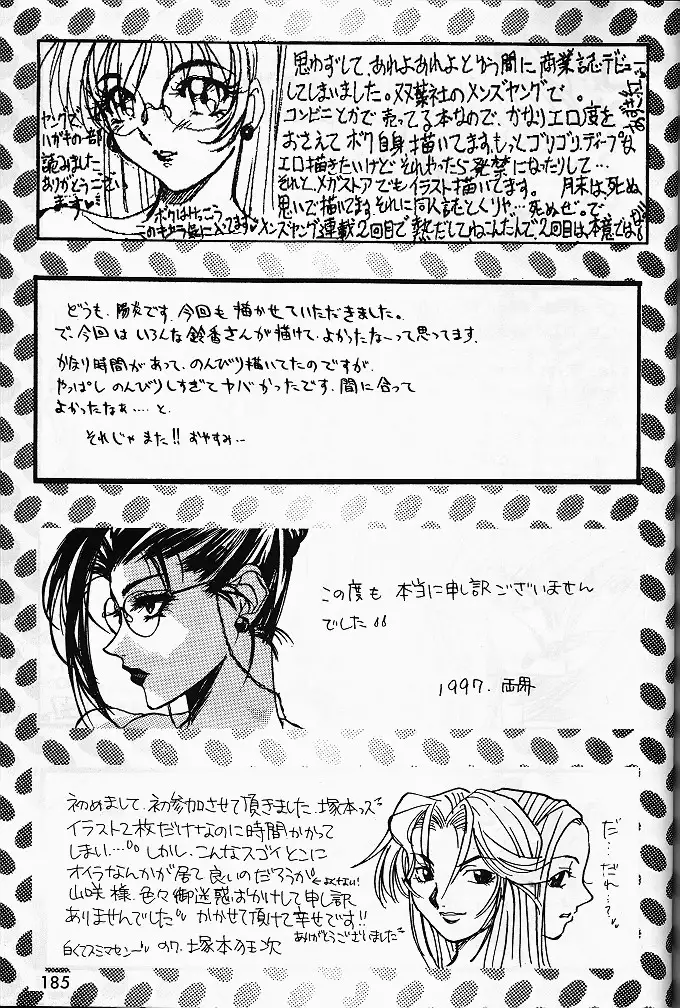 思わずして、あれよあれよという間に商業誌デビュー
してしまいました。双葉社のメンズヤングで。
コンビニとかで売ってる本なので、かなりエロ度を
おさえてボク自身描いてます。もっとゴリゴリディープな
エロ描きたいけど、それやったら発禁になったりして…
それと、メガストアでもイラスト描いてます。 月末は死ぬ
思いで描いてます。それに同人誌とくりゃ…死ぬぜ。で、
メンズヤング連載2回目で熱だしてねこんだんで、2回目は、本意では
ヤングで、
ハガキの一部
読みました。
ありがとうござい
ます♡
ボクはけっこう
このキャラ気に入ってます♡
どうも、陽炎です。今回も描かせていただきました。
で、今回はいろんな鈴香さんが描けて、よかったなーって思ってます。
かなり時間があって、のんびり描いてたのですが、
やっぱし のんびりしすぎて ヤバかったです。間に合って
よかったなぁ…. と、
それじゃ また!! おやすみ…
この度も 本当に申し訳ございません
でした
1997. 両界
初めまして、初参加させて頂きました、塚本っス
イラスト2枚だけなのに時間かかって
しまい… しかし、こんなスゴイとこに
オイラなんかが居て良いのだろうか ←よくない!
山咲様、色々御迷惑おかけして申し訳
ありませんでした かかせて頂けて幸せです!!
ありがとうございました
白くてスミマセン
のワ. 塚本狂次
だ…
だれ…?
185